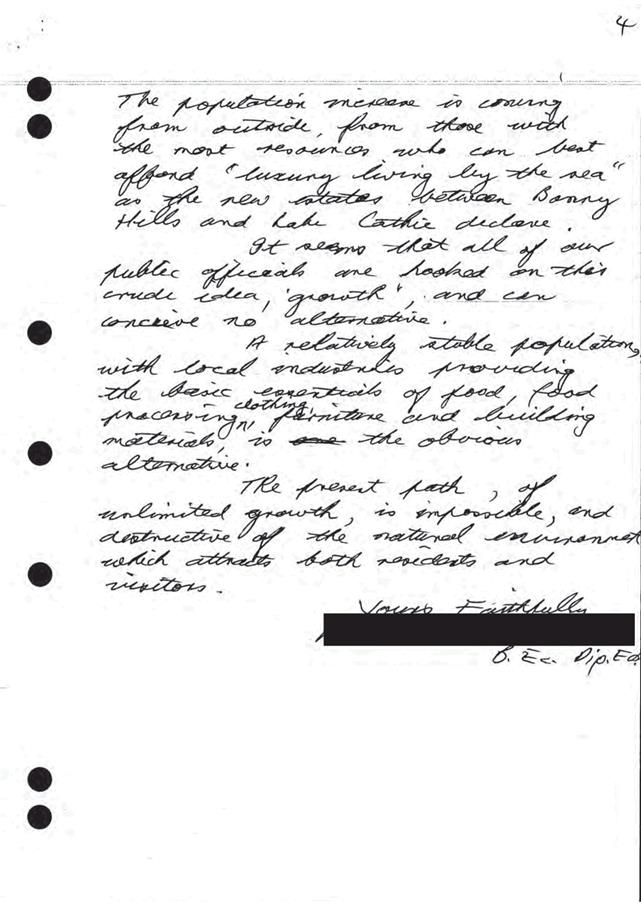 4
The population increase is coming
from outside, from those with
the most resources who can best
afford "luxury living by the sea"
as the new estates between Bonny
Hills and Lake Cathie declare.
It seems that all of our
public officials are hooked on this
crude idea, 'growth', and can
concieve no alternative.
A relatively stable population,
with local industries providing
the basic essentials of food, food
processing, clothing, furniture and building
materials, is the obvious
alternative.
The present path, of
unlimited growth, is impossible, and
destructive of the natural environment
which attracts both residents and
visitors.
Yours Faithfully
B. Ec. Dip. Ed.